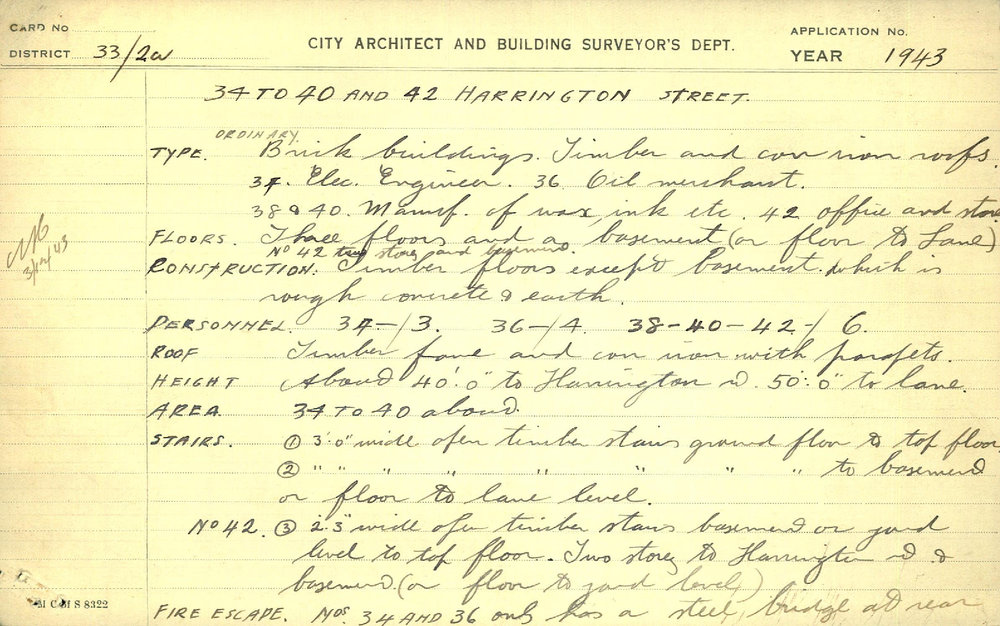 CARD NO
DISTRICT 33/2a
CITY ARCHITECT AND BUILDING SURVEYOR'S DEPT.
APPLICATION NO.
YEAR 1943
34 TO 40 AND 42 HARRINGTON STREET.
ORDINARY
TYPE. Brick buildings. Timber and corr iron roofs.
34. Elec. Engineer. 36 Oil merchant.
38 & 40. Manuf. of wax, ink etc. 42 office and store
FLOORS. Three floors and a basement (or floor to Lane)
No 42 two storey and basement
CONSTRUCTION. Timber floors except basement which is
rough concrete & earth.
3/12/43
PERSONNEL. 34-/3. 36-/4. 38-40-42-/6.
ROOF Timber and corr iron with parapets.
HEIGHT About 40'.0" to Harrington St. 50'.0" to lane.
AREA 34 TO 40 about
STAIRS. ① 3'.0" wide open timber stairs ground floor to top floor
② " " " " " " " " to basement
or floor to lane level.
No 42. ③ 2'.3" wide open timber stairs basement or yard
level to top floor. Two storey to Harrington St &
basement (or floor to yard level)
M C M S 8322
FIRE ESCAPE. Nos. 34 AND 36 only has a steel bridge at rear